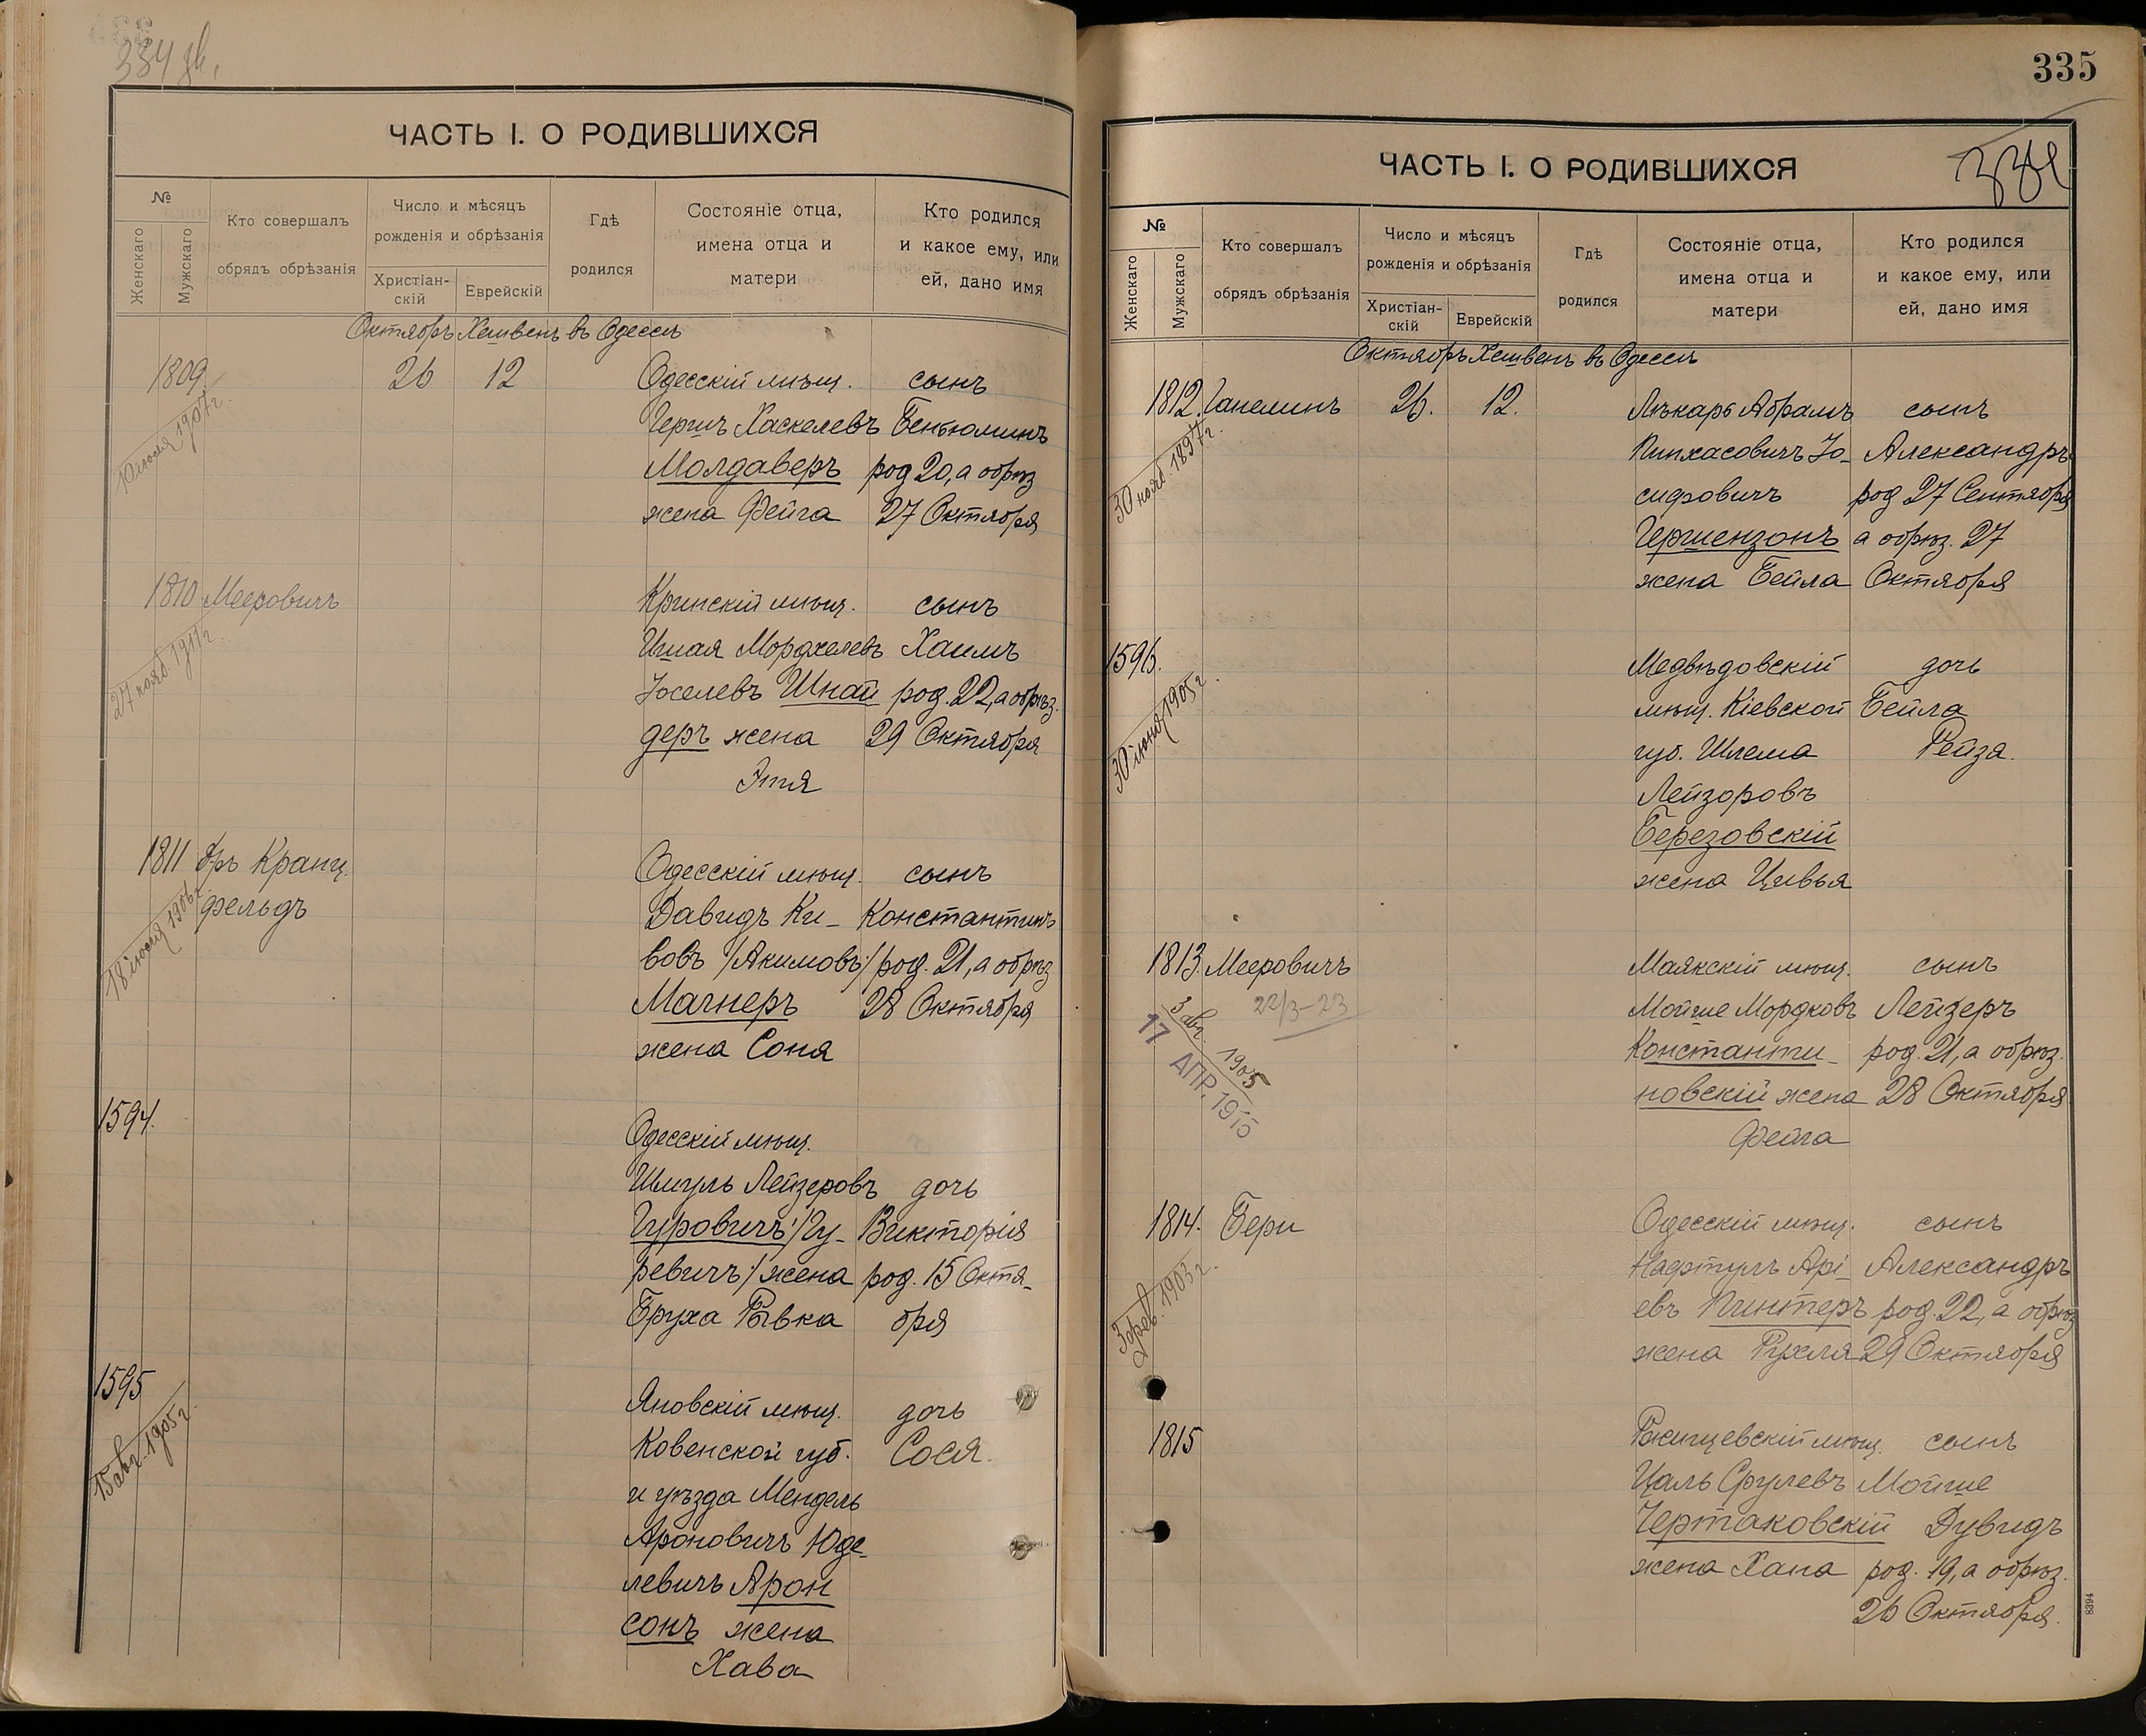 334 об.
ЧАСТЬ I. О РОДИВШИХСЯ
№
Женскаго
Мужскаго
Кто совершалъ
обрядъ обрѣзанія
Число и мѣсяцъ
рожденія и обрѣзанія
Христіан-
скій
Еврейскій
Гдѣ
родился
Состояніе отца,
имена отца и
матери
Кто родился
и какое ему, или
ей, дано имя
Октябрь Хешвенъ въ Одессѣ
1809 26 12 Одесскій мѣщ. сынъ
10 іюля 1907 г.
Гершъ Хаскелевъ Беньюминъ
Молдаверъ род 20, а обрѣз
жена Фейга 27 Октября
1810 Мееровичъ Кринскій мѣщ. сынъ
27 нояб. 1911 г.
Ишая Мордхелевъ Хаимъ
Іоселевъ Шнай род. 22, а обрѣз.
деръ жена 29 Октября
Этя
1811 Д-ръ Кранц-
фельдъ
18 іюля 1906 г.
Одесскій мѣщ. сынъ
Давидъ Ки- Константинъ
вовъ /Акимовъ/ род. 21, а обрѣз
Магнеръ 28 Октября
жена Соня
1594.
Одесскій мѣщ.
Шмуль Лейзеровъ дочь
Гуровичъ /Гу- Викторія
ревичъ/ жена род. 15 Октя-
Бруха Рывка бря
1595
15 авг. 1905 г.
Яновскій мѣщ. дочь
Ковенской губ. Сося.
и уѣзда Мендель
Ароновичъ Юде-
левичъ Арон
сонъ жена
Хава
335
334
ЧАСТЬ I. О РОДИВШИХСЯ
№
Женскаго
Мужскаго
Кто совершалъ
обрядъ обрѣзанія
Число и мѣсяцъ
рожденія и обрѣзанія
Христіан-
скій
Еврейскій
Гдѣ
родился
Состояніе отца,
имена отца и
матери
Кто родился
и какое ему, или
ей, дано имя
Октябрь Хешвенъ въ Одессѣ
1812. Ганелинъ 26. 12. Лѣкарь Абрамъ сынъ
30 нояб. 1897 г.
Пинхасовичъ Іо- Александръ
сифовичъ род 27 Сентября
Гершензонъ а обрѣз. 27
жена Бейла Октября
1596.
30 іюня 1905 г.
Медвѣдовскій дочь
мѣщ. Кіевской Бейла
губ. Шлема Рейза.
Лейзоровъ
Березовскій
жена Цивья
1813. Мееровичъ Маякскій мѣщ. сынъ
22/3-23
3 авг. 1905
17 АПР. 1915
Мойше Мордковъ Лейзеръ
Константи- род. 21, а обрѣз.
новскій жена 28 Октября
Фейга
1814. Бери Одесскій мѣщ. сынъ
3 фев. 1903 г.
Нафтулъ Арі- Александръ
евъ Пинтеръ род. 22, а обрѣз
жена Рухля 29 Октября
1815 мѣщ. сынъ
Цаль Срулевъ Мойше
Чертаковскій Дувидъ
жена Хана род. 19, а обрѣз.
26 Октября.
8394